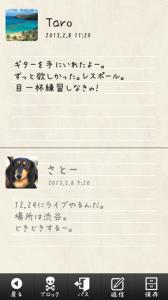 Taro
2013,2,8 11:20
ギターを手にいれたよー。
ずっと欲しかった。レスポール。
目一杯練習しなきゃ!
さとー
2013,2,8 9:20
12,24にライブやるんだ。
場所は渋谷。
どきどきするー。
戻る
ブロック
パス
返信
保存